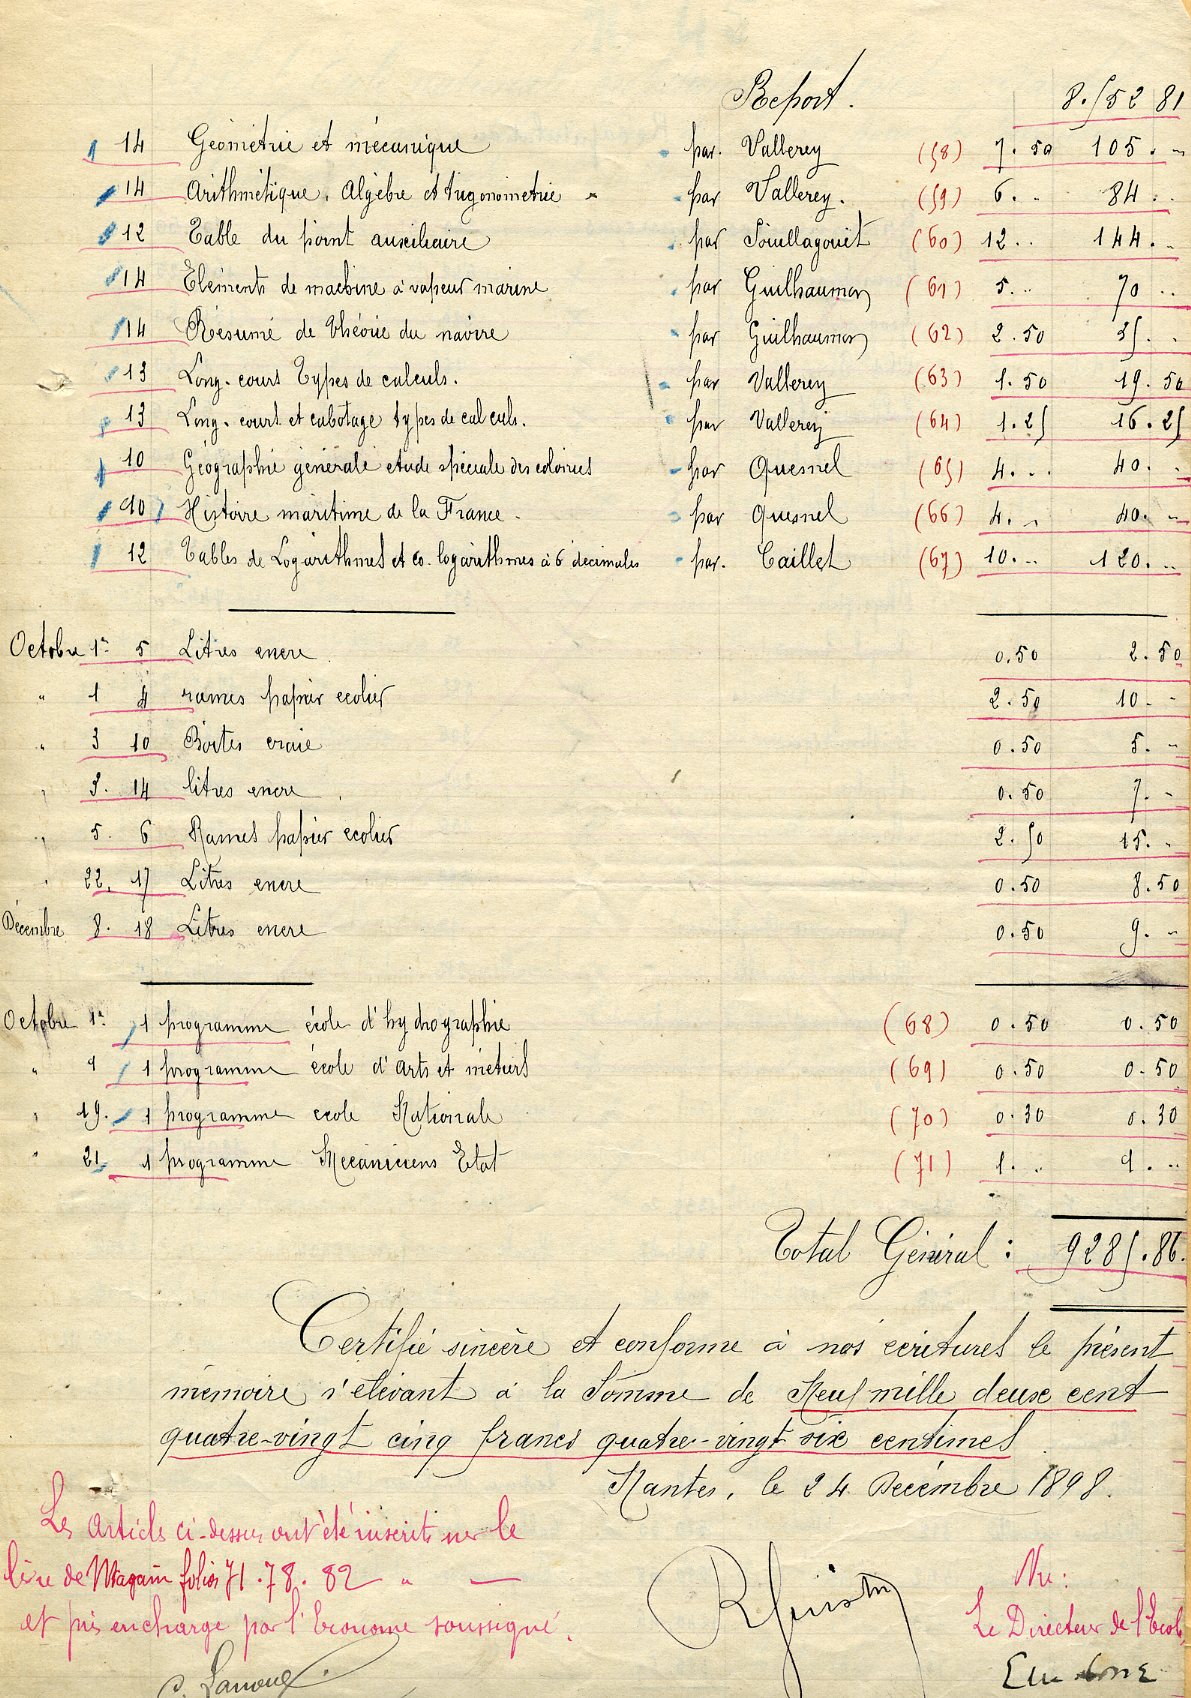 Report. 8.552 81
14 Géométrie et mécanique par. Vallerey (58) 7.50 105. "
14 Arithmétique, Algèbre et trigonométrie " par Vallerey. (59) 6. " 84. "
12 Table du point auxiliaire par Souillagouët (60) 12. " 144. "
14 Eléments de machine à vapeur marine par Guilhaumon (61) 5. " 70 "
14 Résumé de théorie du navire par Guilhaumon (62) 2.50 35. "
13 Long-court Types de calculs. par Vallerey (63) 1.50 19.50
13 Long-court et cabotage types de calculs. par Vallerey (64) 1.25 16.25
10 Géographie générale etude spéciale des colonies par Quesnel (65) 4. " 40. "
10 Histoire maritime de la France. par Quesnel (66) 4. " 40. "
12 Tables de Logarithmes et co-logarithmes à 6 décimales par. Caillet (67) 10. " 120. "
Octobre 1er 5 Litres encre 0.50 2.50
" 1 4 rames papier ecolier 2.50 10. "
" 3 10 Boites craie 0.50 5. "
" 3. 14 litres encre 0.50 7. "
" 5. 6 Rames papier ecolier 2.50 15. "
" 22. 17 Litres encre 0.50 8.50
Décembre 8. 18 Litres encre 0.50 9. "
Octobre 1er 1 programme école d'hydrographie (68) 0.50 0.50
" 9 1 programme école d'arts et métiers (69) 0.50 0.50
" 19. 1 programme ecole Nationale (70) 0.30 0.30
" 21 1 programme Mécaniciens Etat (71) 1. " 1. "
Total Général : 9285.86.
Certifié sincère et conforme à nos écritures le présent
mémoire s'élevant à la Somme de Neuf mille deux cent
quatre-vingt cinq francs quatre-vingt six centimes
Nantes, le 24 Décembre 1898.
Les articles ci-dessus ont été inscrits sur le
livre de Magasin folios 71.78.82 " —
et pris en charge par l'Econome soussigné.
Vu :
Le Directeur de l'Ecole